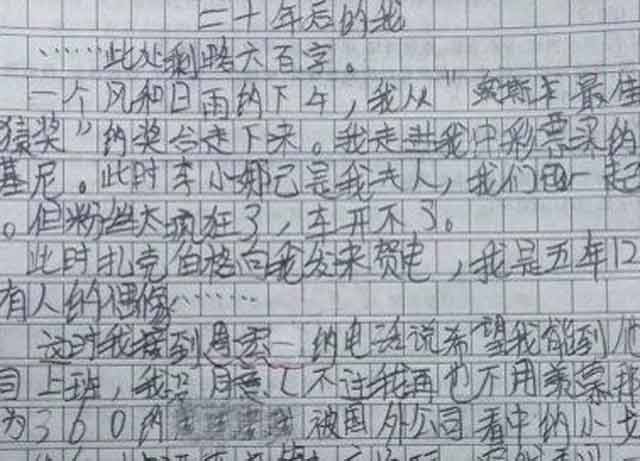 二十年后的我
……此处剩略六百字。
一个风和日雨的下午，我从“奥斯卡最佳
猿奖”的奖台走下来。我走进我中彩票买的
基尼。此时李小娜己是我夫人，我们一起
。但粉丝太疯狂了，车开不了。
此时扎克伯格向我发来贺电，我是五年12
有人的偶像……
这时我接到周一的电话说希望我能到
目上班，我不过我再也不用羡慕
为360的被国外公司看中的小